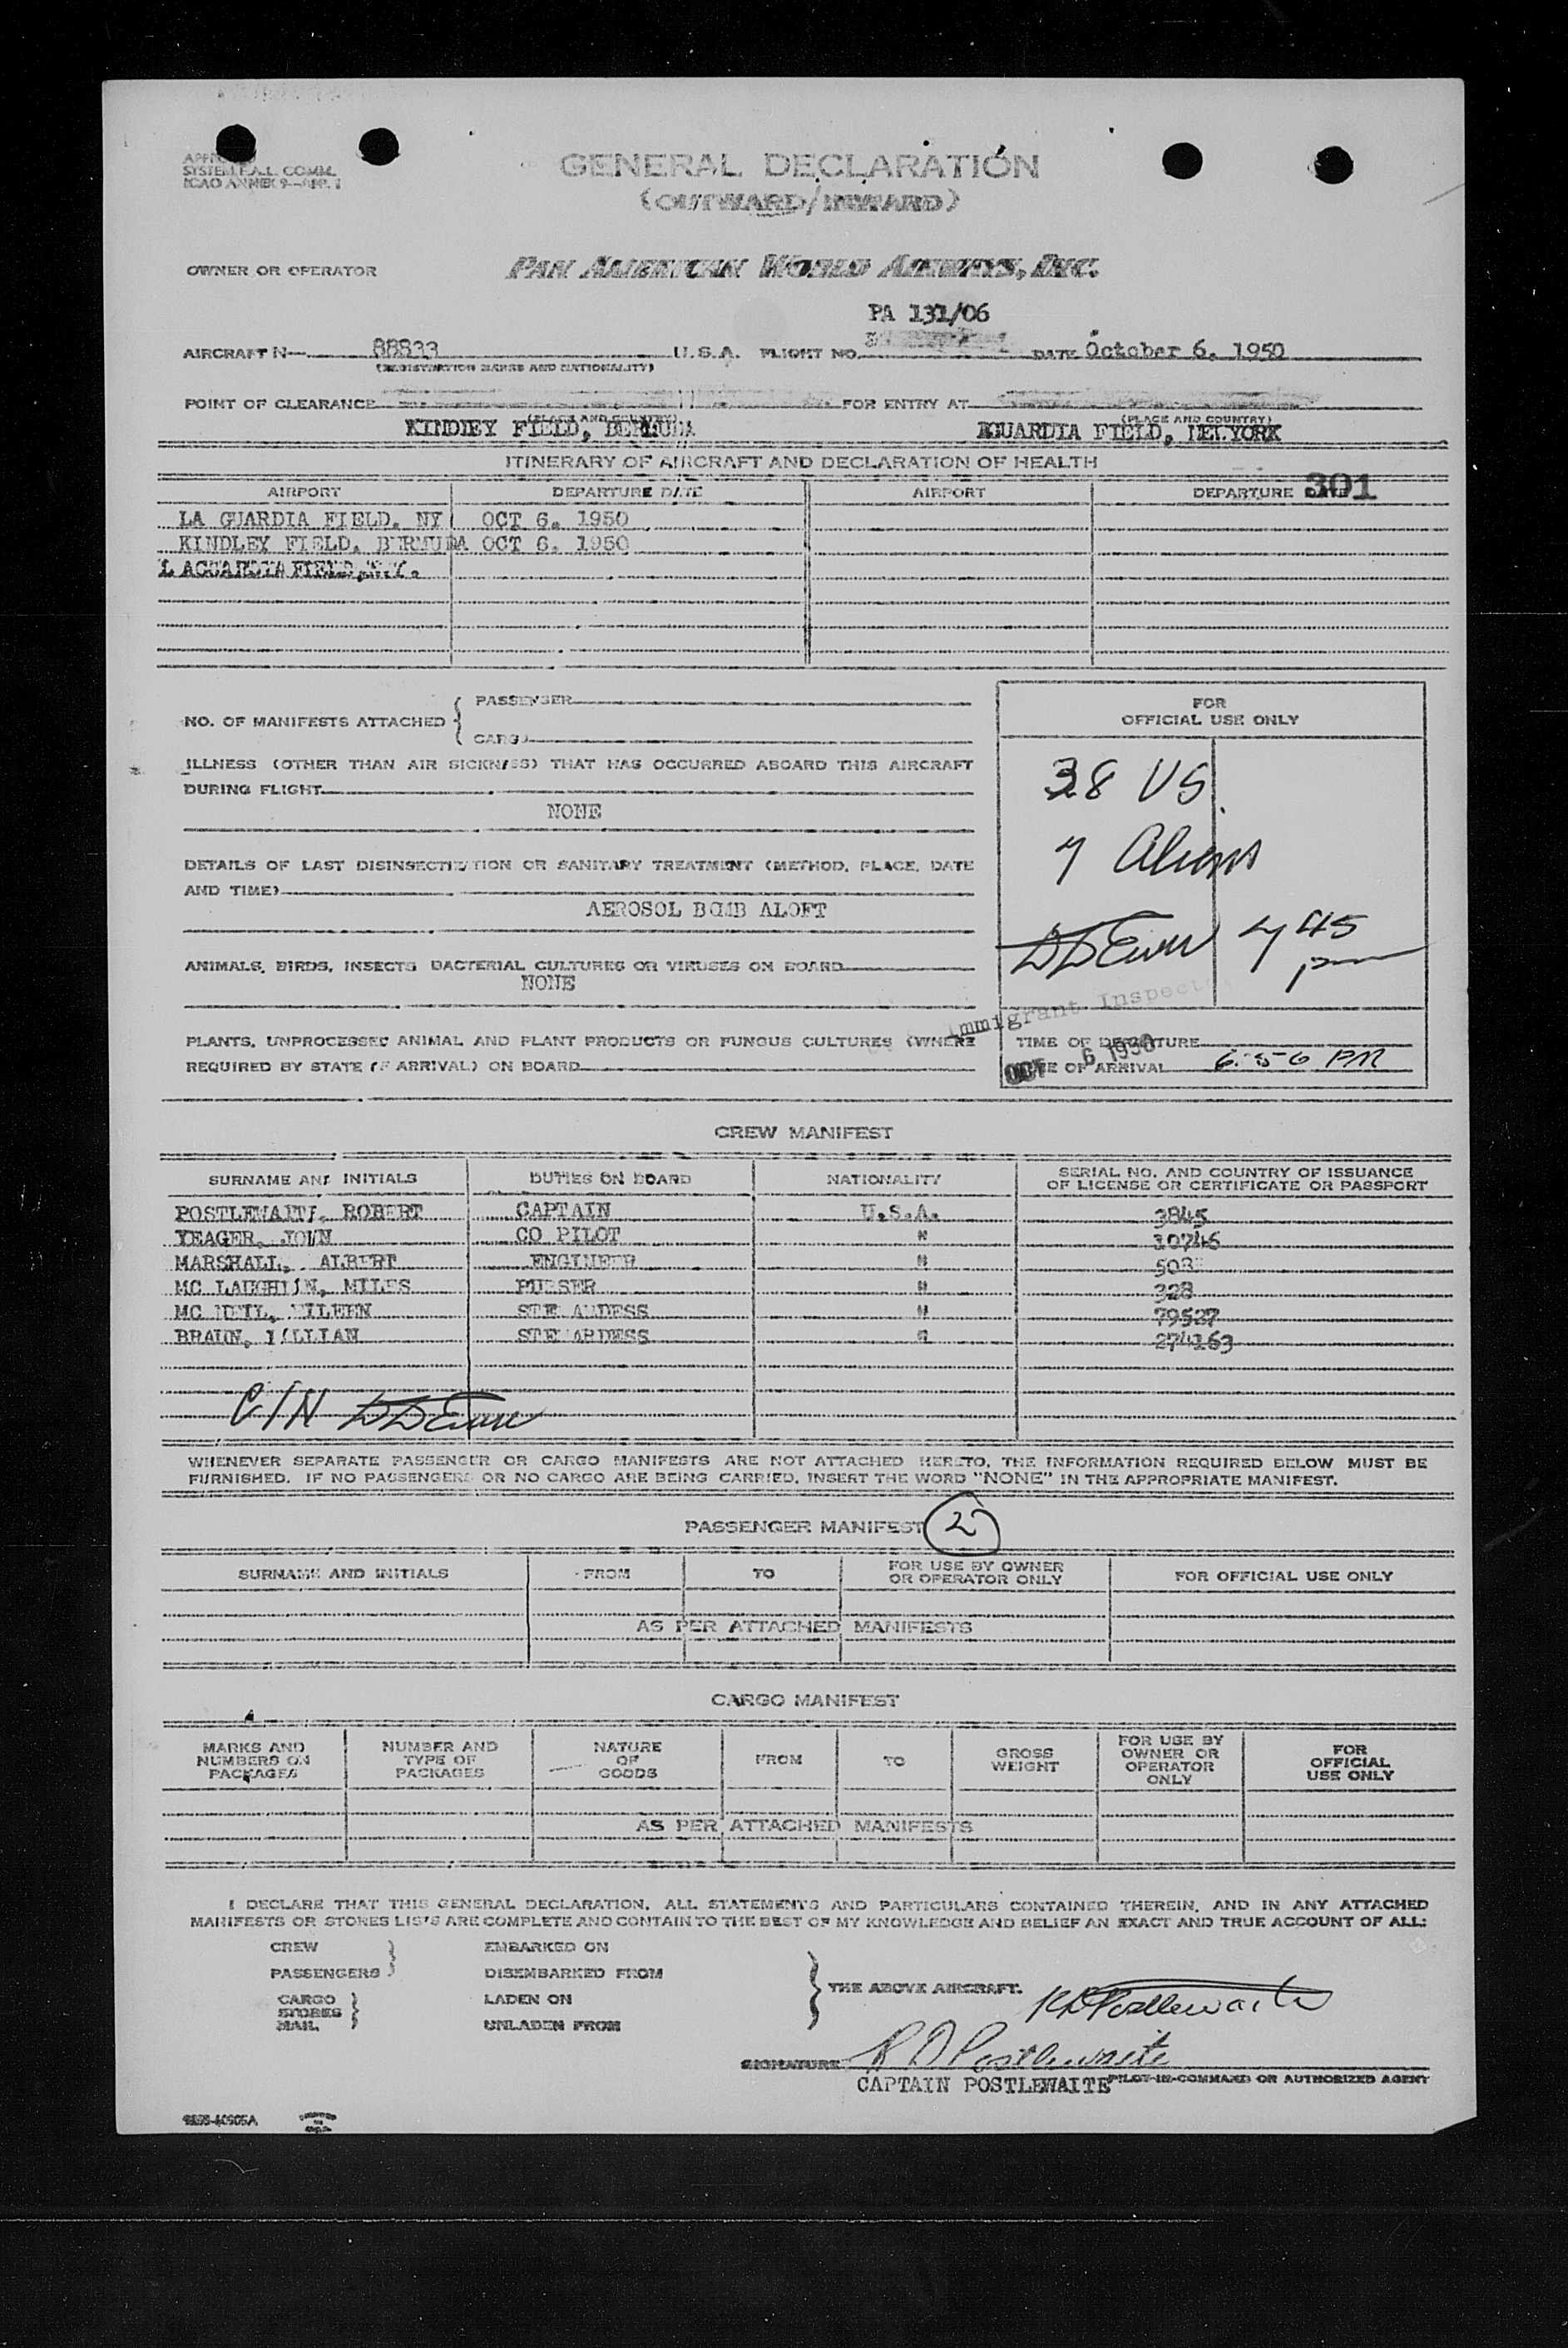 SYSTEM F.A.L. COMM.
ICAO ANNEX 9—APP. 1
GENERAL DECLARATION
(OUTWARD/INWARD)
OWNER OR OPERATOR PAN AMERICAN WORLD AIRWAYS, INC.
PA 131/06
AIRCRAFT N— 88833 U.S.A. FLIGHT NO. DATE October 6, 1950
(REGISTRATION MARKS AND NATIONALITY)
POINT OF CLEARANCE FOR ENTRY AT
(PLACE AND COUNTRY) (PLACE AND COUNTRY)
KINDLEY FIELD, BERMUDA FIELD, NEW YORK
ITINERARY OF AIRCRAFT AND DECLARATION OF HEALTH
301
AIRPORT DEPARTURE DATE AIRPORT DEPARTURE
LA GUARDIA FIELD, NY OCT 6, 1950
KINDLEY FIELD, BERMUDA OCT 6, 1950
L AGUARDIA FIELD, N.Y.
NO. OF MANIFESTS ATTACHED { PASSENGER
CARGO
ILLNESS (OTHER THAN AIR SICKNESS) THAT HAS OCCURRED ABOARD THIS AIRCRAFT
DURING FLIGHT
NONE
DETAILS OF LAST DISINSECTIZATION OR SANITARY TREATMENT (METHOD, PLACE, DATE
AND TIME)
AEROSOL BOMB ALOFT
ANIMALS, BIRDS, INSECTS BACTERIAL CULTURES OR VIRUSES ON BOARD
NONE
PLANTS, UNPROCESSED ANIMAL AND PLANT PRODUCTS OR FUNGUS CULTURES (WHERE
REQUIRED BY STATE OF ARRIVAL) ON BOARD
FOR
OFFICIAL USE ONLY
38 US
7 Aliens
7 45
pm
Immigrant Inspector
TIME OF DEPARTURE
OCT 6 1950
OF ARRIVAL 6:56 PM
CREW MANIFEST
SURNAME AND INITIALS DUTIES ON BOARD NATIONALITY SERIAL NO. AND COUNTRY OF ISSUANCE
OF LICENSE OR CERTIFICATE OR PASSPORT
POSTLEWAITE, ROBERT CAPTAIN U.S.A. 3845
YEAGER, JOHN CO PILOT " 10746
MARSHALL, ALBERT ENGINEER "
MC LAUGHLIN, MILES PURSER " 328
MC NEIL, EILEEN STEWARDESS " 79527
BRAUN, LILLIAN STEWARDESS " 274163
C/N
WHENEVER SEPARATE PASSENGER OR CARGO MANIFESTS ARE NOT ATTACHED HERETO, THE INFORMATION REQUIRED BELOW MUST BE
FURNISHED. IF NO PASSENGERS OR NO CARGO ARE BEING CARRIED, INSERT THE WORD "NONE" IN THE APPROPRIATE MANIFEST.
PASSENGER MANIFEST 2
SURNAME AND INITIALS FROM TO FOR USE BY OWNER
OR OPERATOR ONLY FOR OFFICIAL USE ONLY
AS PER ATTACHED MANIFESTS
CARGO MANIFEST
MARKS AND
NUMBERS ON
PACKAGES
NUMBER AND
TYPE OF
PACKAGES
NATURE
OF
GOODS
FROM
TO
GROSS
WEIGHT
FOR USE BY
OWNER OR
OPERATOR
ONLY
FOR
OFFICIAL
USE ONLY
AS PER ATTACHED MANIFESTS
I DECLARE THAT THIS GENERAL DECLARATION, ALL STATEMENTS AND PARTICULARS CONTAINED THEREIN, AND IN ANY ATTACHED
MANIFESTS OR STORES LISTS ARE COMPLETE AND CONTAIN TO THE BEST OF MY KNOWLEDGE AND BELIEF AN EXACT AND TRUE ACCOUNT OF ALL:
CREW EMBARKED ON
PASSENGERS } DISEMBARKED FROM
CARGO LADEN ON
STORES }
MAIL UNLADEN FROM
} THE ABOVE AIRCRAFT.
R D Postlewaite
SIGNATURE R D Postlewaite
CAPTAIN POSTLEWAITE PILOT-IN-COMMAND OR AUTHORIZED AGENT